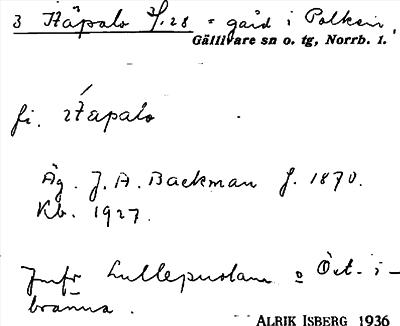 3 Häpalo 2/1.28 = gård i Polkein,
Gällivare sn o. tg, Norrb. l.
fi. Hapalo
Äg. J. A. Backman f. 1870.
Kb. 1927.
Jmfr Lullepuolana o Öst-i-
bränna.
ALRIK ISBERG 1936